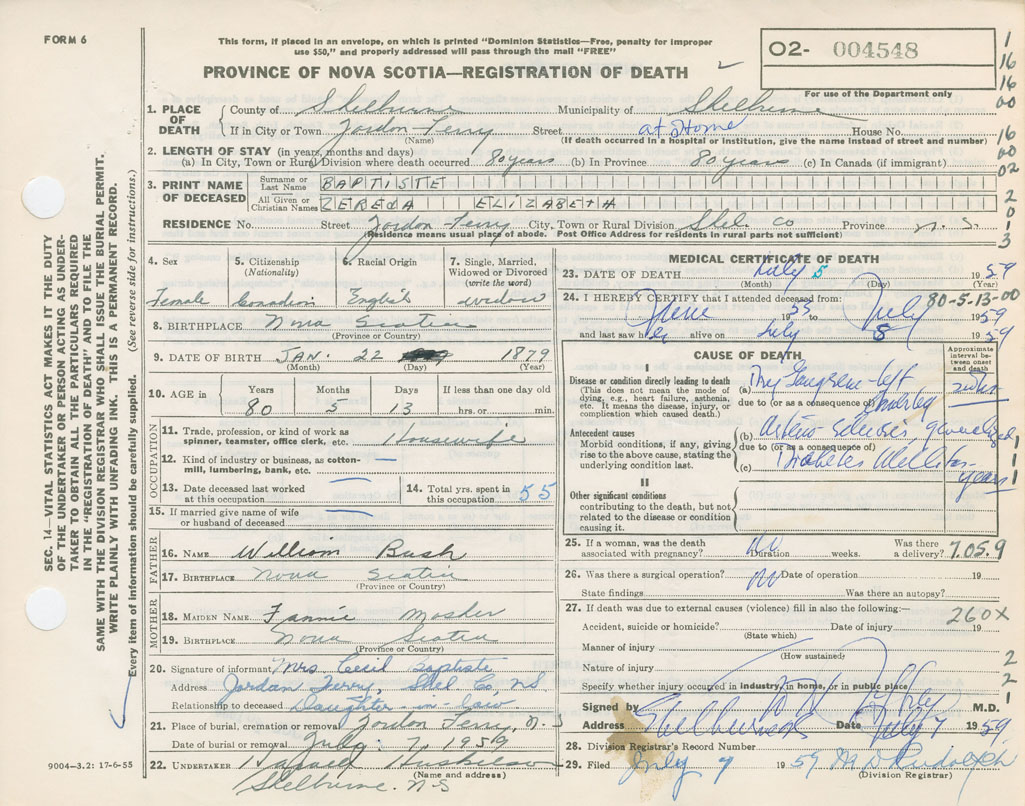 FORM 6
This form, if placed in an envelope, on which is printed "Dominion Statistics—Free, penalty for improper
use $50," and properly addressed will pass through the mail "FREE"
O2- 004548
PROVINCE OF NOVA SCOTIA—REGISTRATION OF DEATH
For use of the Department only
1
16
16
00
16
00
02
2
0
3
1. PLACE OF DEATH
County of Shelburne Municipality of Shelburne
If in City or Town Jordon Ferry Street at Home House No.
(Name) (If death occurred in a hospital or institution, give the name instead of street and number)
2. LENGTH OF STAY (in years, months and days)
(a) In City, Town or Rural Division where death occurred 80 years (b) In Province 80 years (c) In Canada (if immigrant)
3. PRINT NAME OF DECEASED
Surname or Last Name BAPTISTE
All Given or Christian Names ZEREDA ELIZABETH
RESIDENCE No. Street Jordon Ferry City, Town or Rural Division Shel. Co Province N. S.
Residence means usual place of abode. Post Office Address for residents in rural parts not sufficient)
4. Sex
Female
5. Citizenship
(Nationality)
Canadian
6. Racial Origin
English
7. Single, Married,
Widowed or Divorced
(write the word)
widow
8. BIRTHPLACE Nova Scotia
(Province or Country)
9. DATE OF BIRTH JAN. 22 1879
(Month) (Day) (Year)
10. AGE in
Years Months Days If less than one day old
80 5 13 hrs. or min.
OCCUPATION
11. Trade, profession, or kind of work as
spinner, teamster, office clerk, etc. Housewife
12. Kind of industry or business, as cotton-
mill, lumbering, bank, etc. —
13. Date deceased last worked
at this occupation —
14. Total yrs. spent in
this occupation 55
15. If married give name of wife
or husband of deceased —
FATHER
16. NAME William Bush
17. BIRTHPLACE Nova Scotia
(Province or Country)
MOTHER
18. MAIDEN NAME Fannie Mosher
19. BIRTHPLACE Nova Scotia
(Province or Country)
20. Signature of informant Mrs Cecil Baptiste
Address Jordan Ferry, Shel Co, NS
Relationship to deceased Daughter-in-law
21. Place of burial, cremation or removal Jordon Ferry, N. S
Date of burial or removal July 7, 1959
22. UNDERTAKER Harold Huskilson
(Name and address)
Shelburne. N S
MEDICAL CERTIFICATE OF DEATH
23. DATE OF DEATH July 5 1959
(Month) (Day) (Year)
24. I HEREBY CERTIFY that I attended deceased from: 80-5-13-00
June 1955 to July 1959
and last saw her alive on July 5 1959
CAUSE OF DEATH
Approximate
interval be-
tween onset
and death
I
Disease or condition directly leading to death
(This does not mean the mode of
dying, e.g., heart failure, asthenia,
etc. It means the disease, injury, or
complication which caused death.)
(a) Dry Gangrene left
due to (or as a consequence of)
Antecedent causes
Morbid conditions, if any, giving
rise to the above cause, stating the
underlying condition last.
(b) Arterio sclerosis, generalized
due to (or as a consequence of)
(c) Diabetes Mellitus
years
1
1
1
II
Other significant conditions
contributing to the death, but not
related to the disease or condition
causing it.
25. If a woman, was the death
associated with pregnancy? No Duration weeks. Was there
a delivery?
7.05.9
26. Was there a surgical operation? no Date of operation 19
State findings Was there an autopsy?
27. If death was due to external causes (violence) fill in also the following:—
260X
Accident, suicide or homicide? Date of injury 19
(State which)
Manner of injury
(How sustained)
Nature of injury
Specify whether injury occurred in industry, in home, or in public place
2
2
1
Signed by M.D.
Address Shelburne Date July 7 1959
28. Division Registrar's Record Number
29. Filed July 9 1959 M D Rudolph
(Division Registrar)
SEC. 14—VITAL STATISTICS ACT MAKES IT THE DUTY
OF THE UNDERTAKER OR PERSON ACTING AS UNDER-
TAKER TO OBTAIN ALL THE PARTICULARS REQUIRED
IN THE "REGISTRATION OF DEATH" AND TO FILE THE
SAME WITH THE DIVISION REGISTRAR WHO SHALL ISSUE THE BURIAL PERMIT.
WRITE PLAINLY WITH UNFADING INK. THIS IS A PERMANENT RECORD.
Every item of information should be carefully supplied. (See reverse side for instructions.)
9004-3.2: 17-6-55